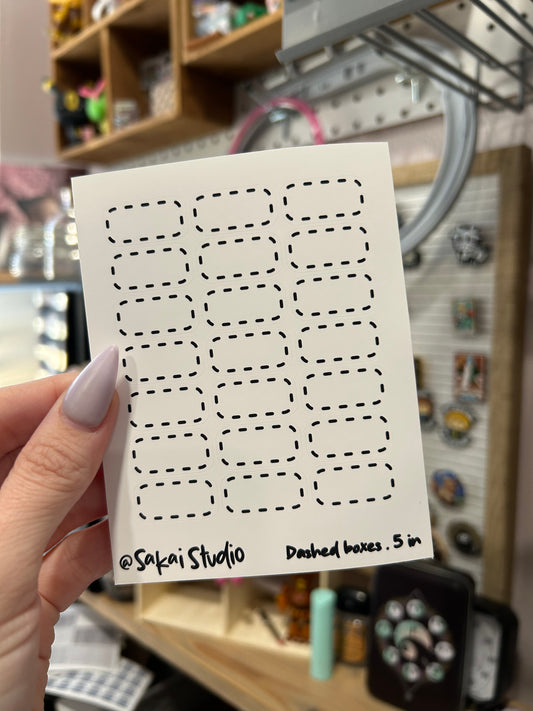 @Sakai Studio
Dashed boxes .5 in